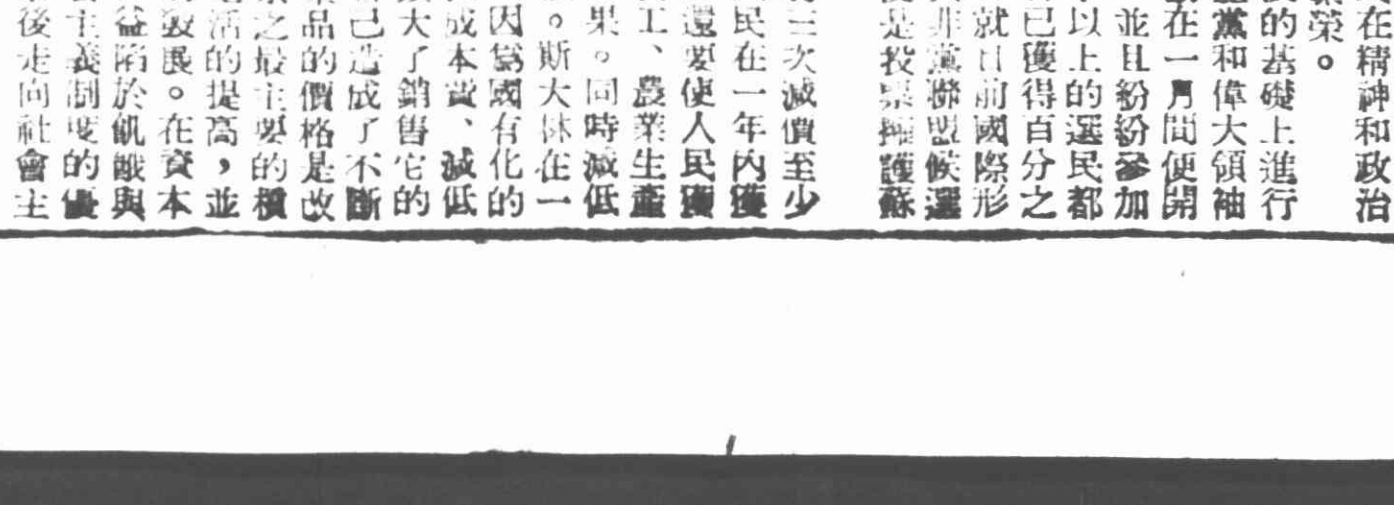 在精神和政治
榮。
的基礎上進行
黨和偉大領袖
在一月間便開
並且紛紛參加
以上的選民都
已獲得百分之
就目前國際形
非黨聯盟候選
是投票擁護蘇
三次減價至少
民在一年內獲
還要使人民獲
工、農業生產
果。同時減低
。斯大林在一
因爲國有化的
成本費、減低
大了銷售它的
己造成了不斷
品的價格是改
之最主要的槓
活的提高,並
發展。在資本
益陷於飢餓與
主義制度的優
後走向社會主